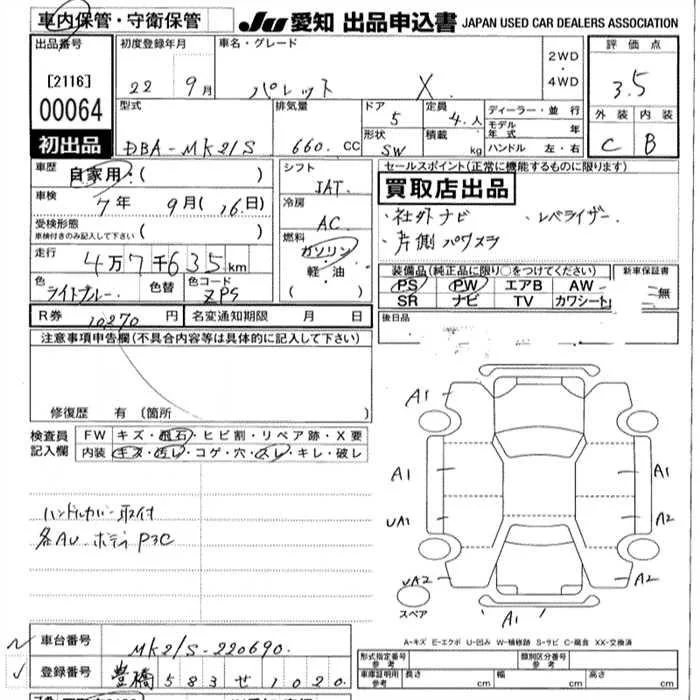 車内保管・守衛保管
JU 愛知 出品申込書 JAPAN USED CAR DEALERS ASSOCIATION
出品番号
[2116]
00064
初出品
初度登録年月
22 9月
車名・グレード
パレット X
2WD
・
4WD
評価点
3.5
外装 内装
C B
型式
DBA-MK21S
排気量
660 cc
ドア
5
定員
4人
形状
SW
積載
kg
ディーラー・並行
モデル年式 年
ハンドル 左・右
車歴
自家用・( )
車検
7年 9月(16日)
受検形態
車検付きのみ記入して下さい
( )
走行
4万7千635km
色
ライトブルー
色替
色コード
ZPS
シフト
IAT
冷房
AC
燃料
ガソリン
・
軽・油
( )
セールスポイント(正常に機能するものに限ります)
買取店出品
・社外ナビ ・レベライザー
・片側パワスラ
装備品(純正品に限り○をつけてください)
PS PW エアB AW
SR ナビ TV カワシート
新車保証書
無
R券 10270円
名変通知期限 月 日
後日品
注意事項申告欄(不具合内容等は具体的に記入して下さい)
修復歴 有 (箇所 )
検査員
記入欄
FW キズ・飛石・ヒビ割・リペア跡・X要
内装 キズ・汚レ・コゲ・穴・スレ・キレ・破レ
ハンドルカバー取付
各AU ボディP3C
A1
A1 A1
UA1 A2
UA2 A2
スペア
A1
A-キズ E-エクボ U-凹み W-補修跡 S-サビ C-腐食 XX-交換済
車台番号
MK21S-220690
登録番号
豊橋 583 せ 1020
形式指定番号
参考
類別区分番号
参考
車庫証明用
参考
長さ cm
幅 cm
高さ cm